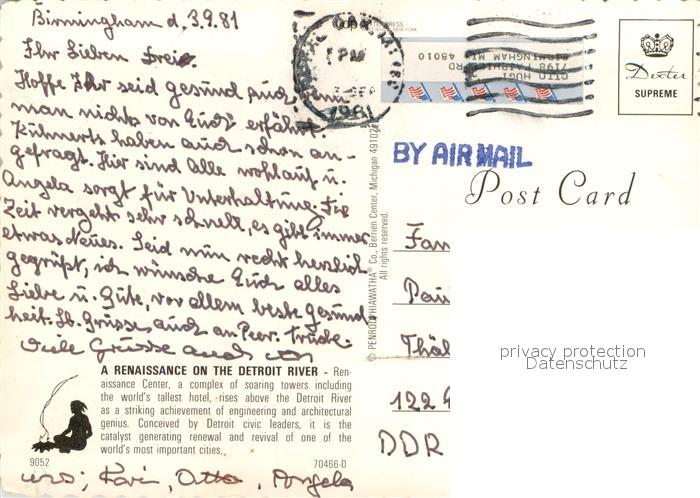 Birmingham d. 3.9.81
Ihr Lieben Drei.
Hoffe Ihr seid gesund auch, wenn
man nichts von Euch erfährt.
Kühnerts haben auch schon an-
gefragt. Hier sind Alle wohlauf u.
Angela sorgt für Unterhaltung. Die
Zeit vergeht sehr schnell, es gibt immer
etwas Neues. Seid nun recht herzlich
gegrüßt, ich wünsche Euch alles
Liebe u. Gute, vor allem beste Gesund
heit. Lb. Grüsse auch an Peer. Trude.
Viele Grüsse auch von
uns; Karin, Otto, Angela
A RENAISSANCE ON THE DETROIT RIVER - Ren-
aissance Center, a complex of soaring towers including
the world's tallest hotel, rises above the Detroit River
as a striking achievement of engineering and architectural
genius. Conceived by Detroit civic leaders, it is the
catalyst generating renewal and revival of one of the
world's most important cities.
9052
70466-D
© PENROD/HIAWATHA® Co., Berrien Center, Michigan 49102
All rights reserved.
PM
1981
OTTO HUGI
BIRMINGHAM MI 48010
Dexter
SUPREME
BY AIR MAIL
Post Card
Fam
122
DDR
privacy protection
Datenschutz